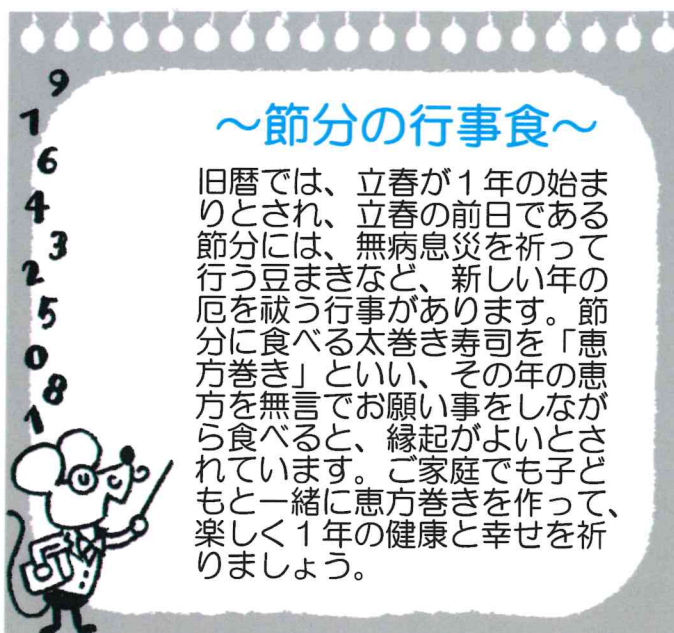 ～節分の行事食～
旧暦では、立春が１年の始ま
りとされ、立春の前日である
節分には、無病息災を祈って
行う豆まきなど、新しい年の
厄を祓う行事があります。節
分に食べる太巻き寿司を「恵
方巻き」といい、その年の恵
方を無言でお願い事をしなが
ら食べると、縁起がよいとさ
れています。ご家庭でも子ど
もと一緒に恵方巻きを作って、
楽しく１年の健康と幸せを祈
りましょう。
9
7
6
4
3
2
5
0
8
1